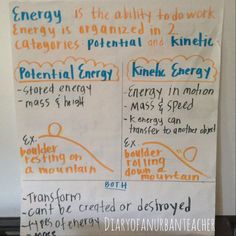 Energy is the ability to do work
Energy is organized in 2
categories - potential and kinetic
Potential Energy
- stored energy
- mass & height
Ex.
boulder
resting on
a mountain
Kinetic Energy
- Energy in motion
- Mass & speed
- K. energy can
transfer to another object
Ex.
boulder
rolling
down a
mountain
BOTH
- Transform
- can't be created or destroyed
- types of energy
DIARYOFANURBANTEACHER